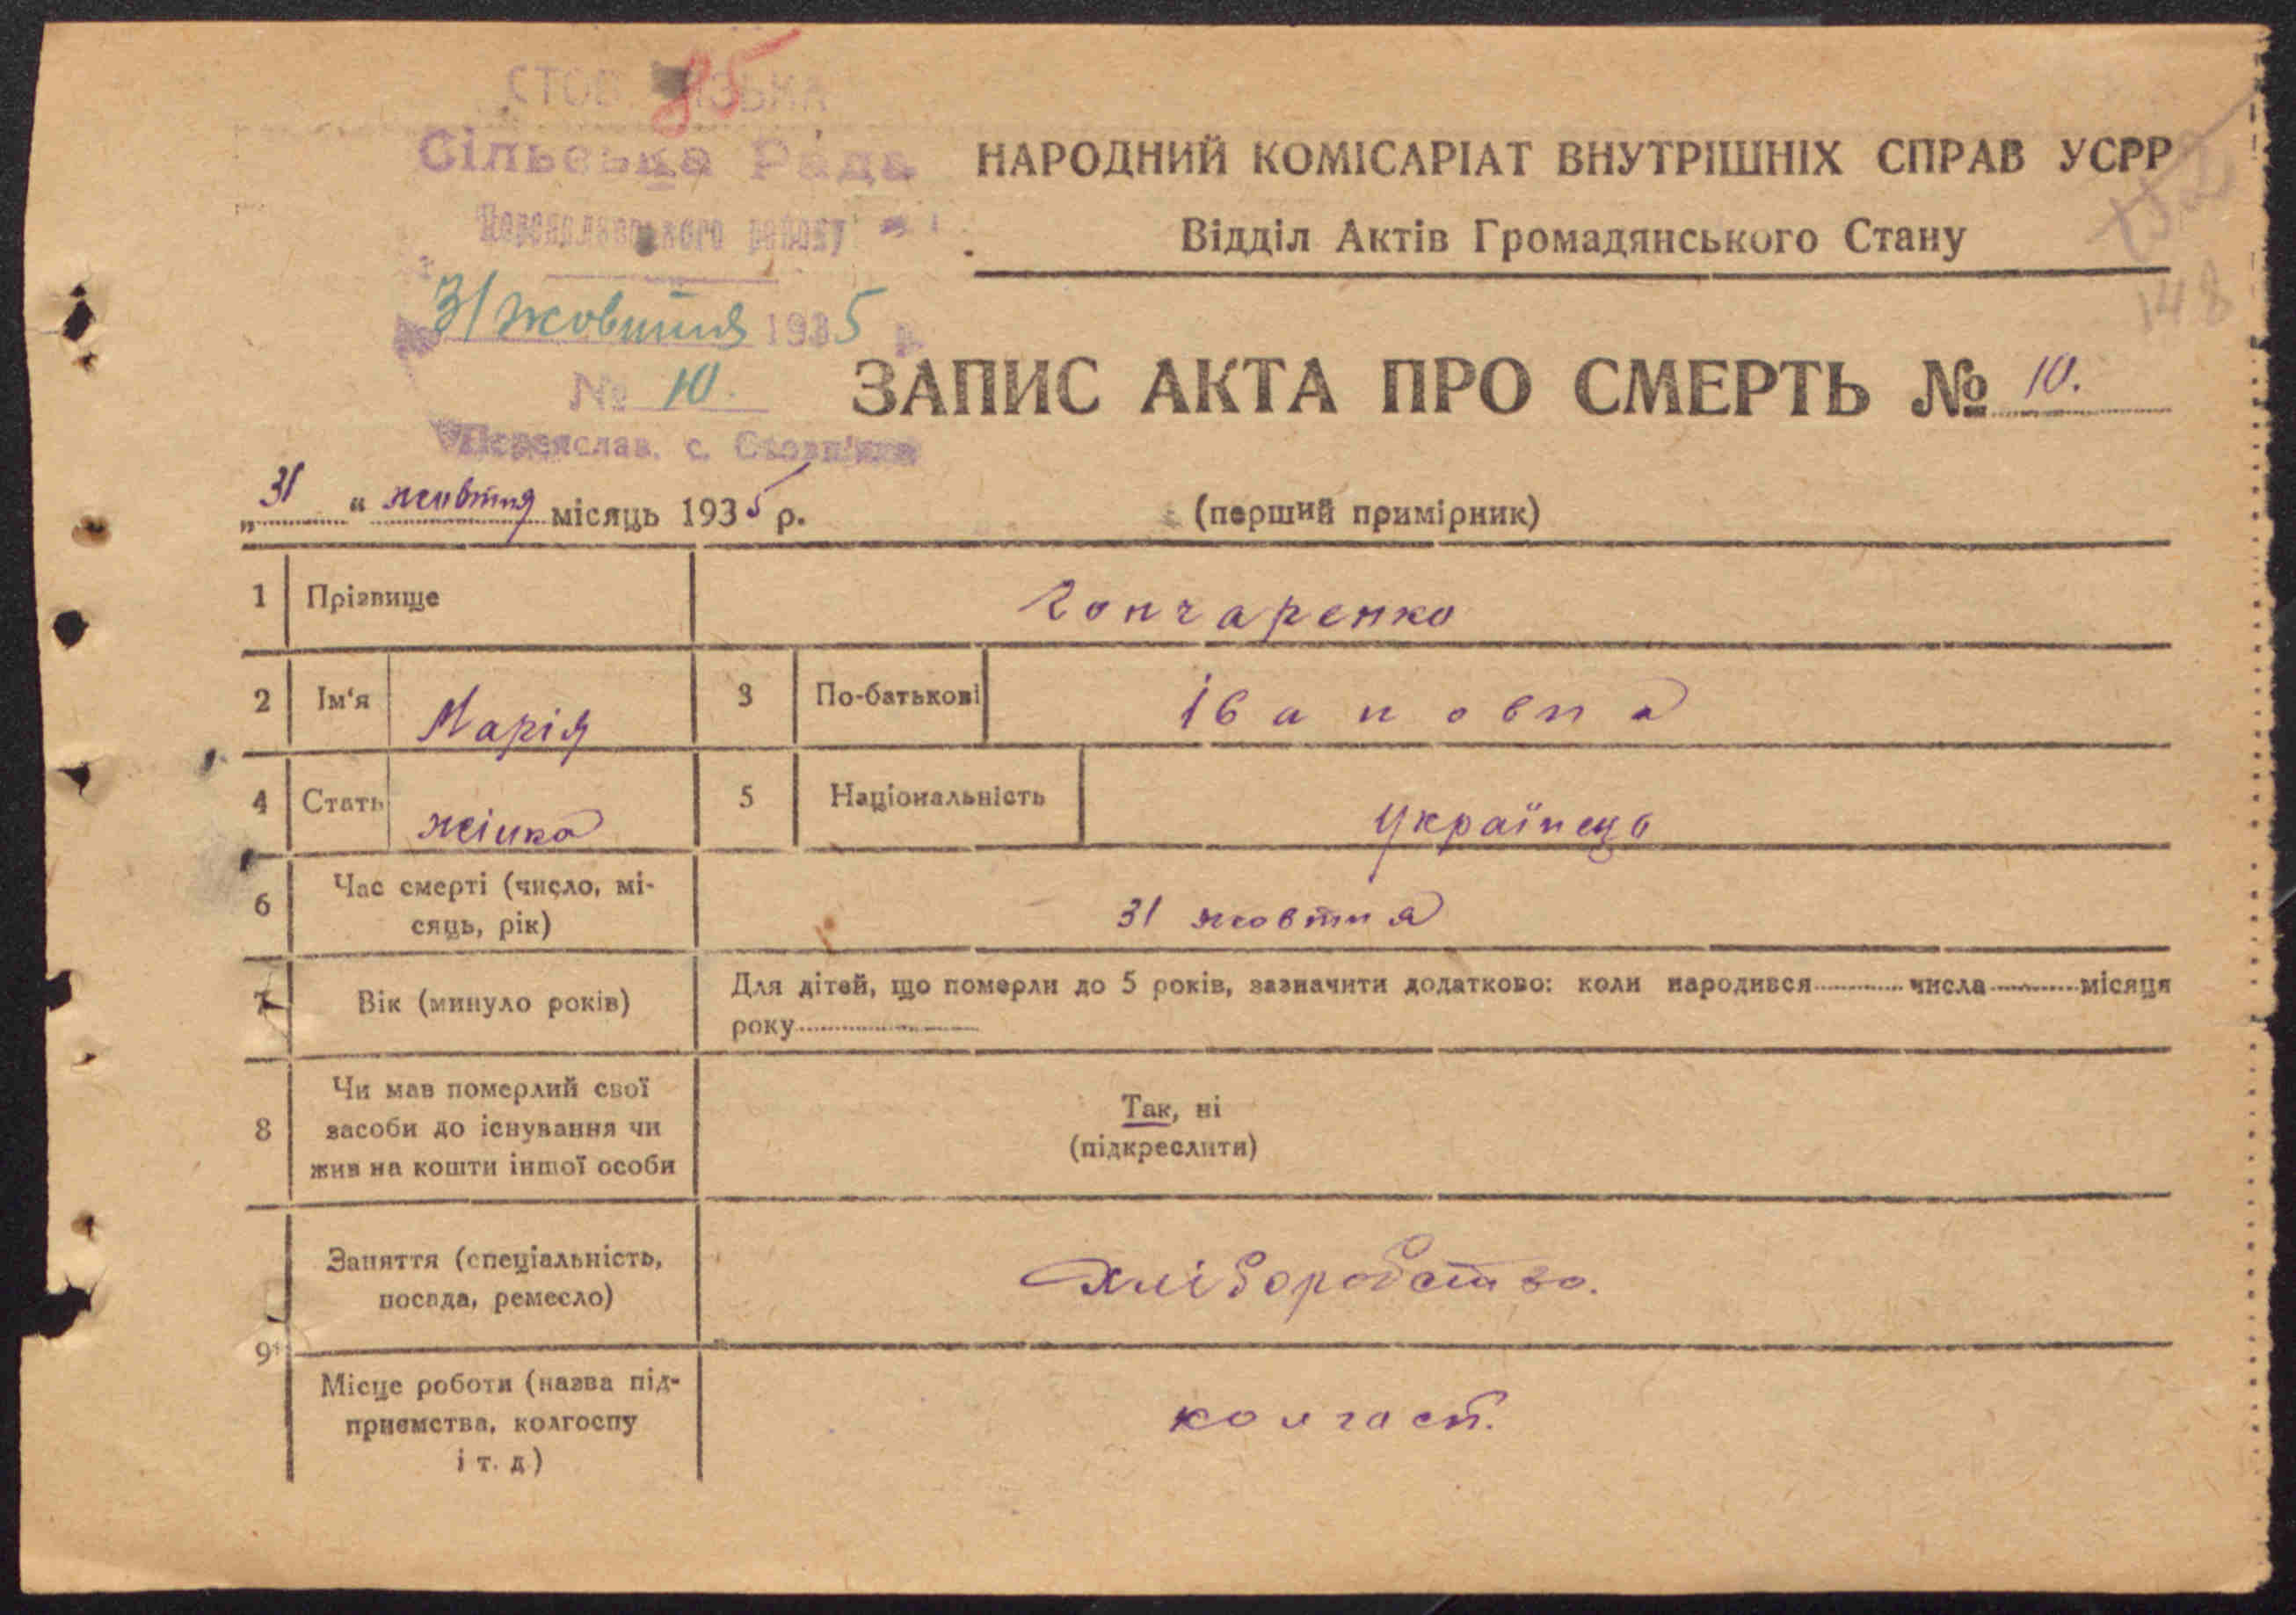 85
Сільська Рада
31 жовтня 1935
№ 10.
Переяслав. с.
НАРОДНИЙ КОМІСАРІАТ ВНУТРІШНІХ СПРАВ УСРР
Відділ Актів Громадянського Стану
148
ЗАПИС АКТА ПРО СМЕРТЬ № 10.
„31“ жовтня місяць 1935 р.
(перший примірник)
1 Прізвище Гончаренко
2 Ім'я Марія 3 По-батькові Івановна
4 Стать жінка 5 Національність Українець
6 Час смерті (число, мі-
сяць, рік) 31 жовтня
7 Вік (минуло років) Для дітей, що померли до 5 років, зазначити додатково: коли народився числа місяця
року
8 Чи мав померлий свої
засоби до існування чи
жив на кошти іншої особи
Так, ні
(підкреслити)
9 Заняття (спеціальність,
посада, ремесло)
хліборобство.
Місце роботи (назва під-
приємства, колгоспу
і т. д)
колгосп.